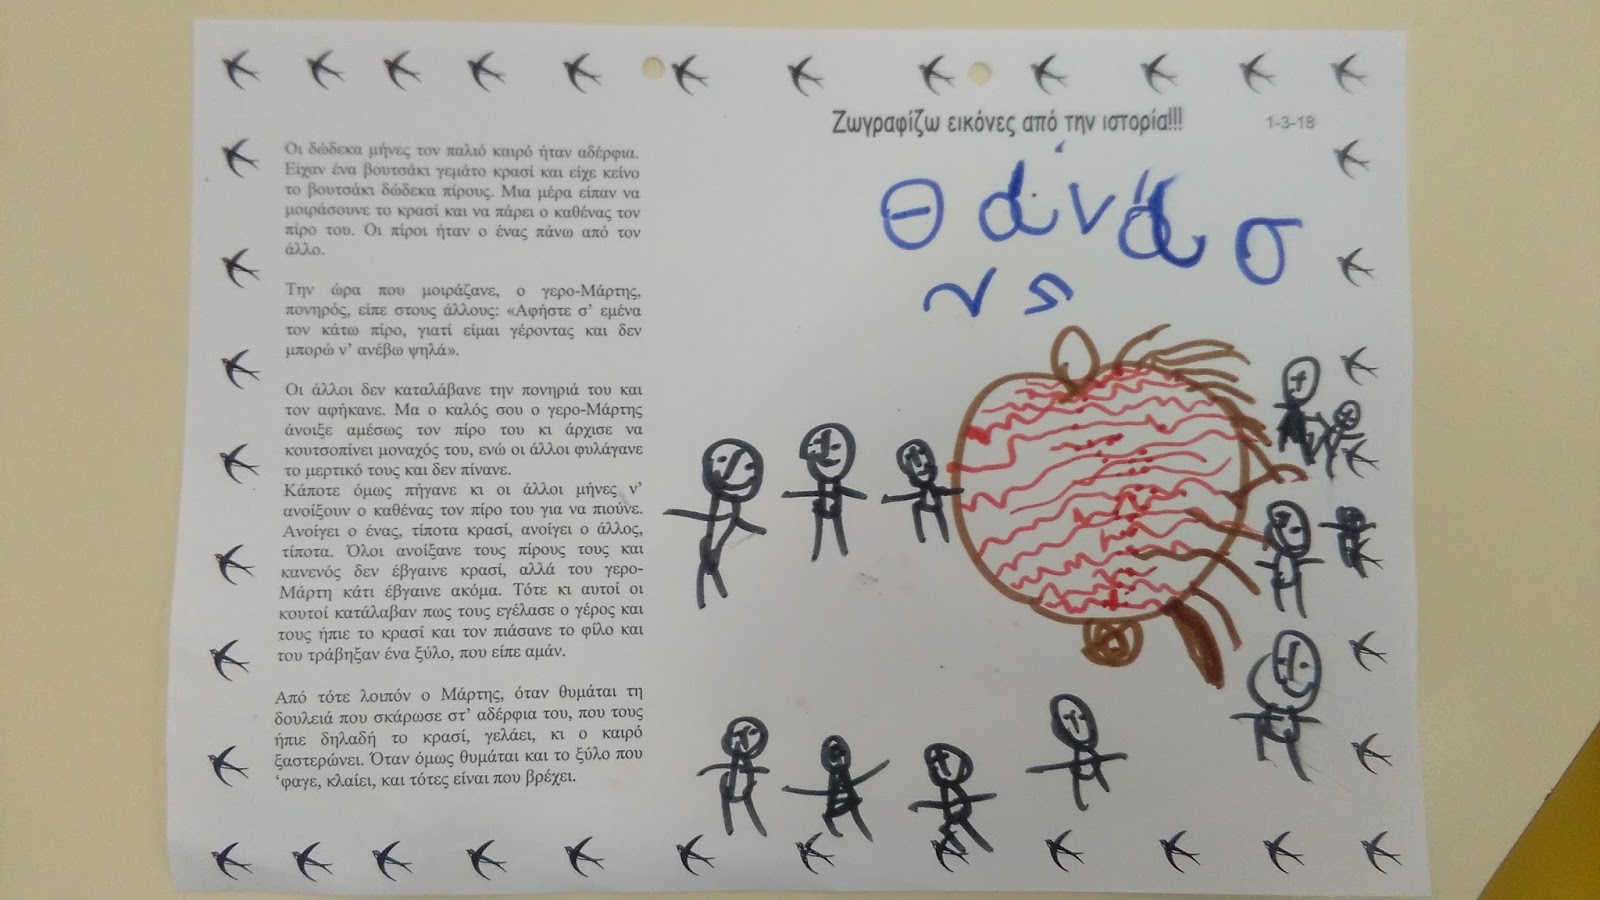 Οι δώδεκα μήνες τον παλιό καιρό ήταν αδέρφια.
Είχαν ένα βουτσάκι γεμάτο κρασί και είχε κείνο
το βουτσάκι δώδεκα πίρους. Μια μέρα είπαν να
μοιράσουνε το κρασί και να πάρει ο καθένας τον
πίρο του. Οι πίροι ήταν ο ένας πάνω από τον
άλλο.
Την ώρα που μοιράζανε, ο γερο-Μάρτης,
πονηρός, είπε στους άλλους: «Αφήστε σ’ εμένα
τον κάτω πίρο, γιατί είμαι γέροντας και δεν
μπορώ ν’ ανέβω ψηλά».
Οι άλλοι δεν καταλάβανε την πονηριά του και
τον αφήκανε. Μα ο καλός σου ο γερο-Μάρτης
άνοιξε αμέσως τον πίρο του κι άρχισε να
κουτσοπίνει μοναχός του, ενώ οι άλλοι φυλάγανε
το μερτικό τους και δεν πίνανε.
Κάποτε όμως πήγανε κι οι άλλοι μήνες ν’
ανοίξουν ο καθένας τον πίρο του για να πιούνε.
Ανοίγει ο ένας, τίποτα κρασί, ανοίγει ο άλλος,
τίποτα. Όλοι ανοίξανε τους πίρους τους και
κανενός δεν έβγαινε κρασί, αλλά του γερο-
Μάρτη κάτι έβγαινε ακόμα. Τότε κι αυτοί οι
κουτοί κατάλαβαν πως τους εγέλασε ο γέρος και
τους ήπιε το κρασί και τον πιάσανε το φίλο και
του τράβηξαν ένα ξύλο, που είπε αμάν.
Από τότε λοιπόν ο Μάρτης, όταν θυμάται τη
δουλειά που σκάρωσε στ’ αδέρφια του, που τους
ήπιε δηλαδή το κρασί, γελάει, κι ο καιρό
ξαστερώνει. Όταν όμως θυμάται και το ξύλο που
‘φαγε, κλαίει, και τότες είναι που βρέχει.
Ζωγραφίζω εικόνες από την ιστορία!!! 1-3-18
θάνάσ